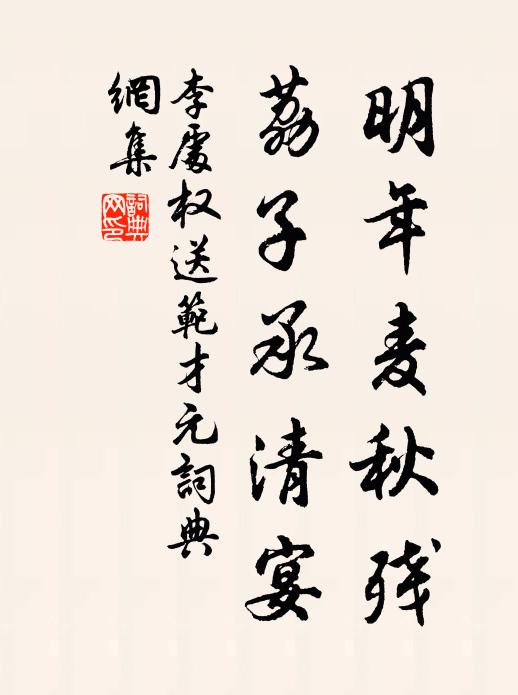 明年麦秋残
荔子承清宴
李處权送範才元詞典
網集
詞典
网印